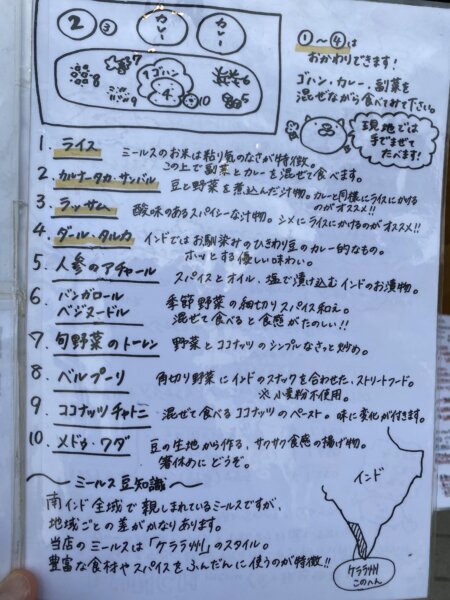 ② ③ カレー カレー
7
8 1 ゴハン 6
4
9 10 5
①〜④は
おかわりできます!
ゴハン・カレー・副菜を
混ぜながら食べてみて下さい。
現地では
手でまぜて
たべます!
1. ライス ミールスのお米は粘り気のなさが特徴。
この上で副菜とカレーを混ぜて食べます。
2. カルナータカ・サンバル 豆と野菜を煮込んだ汁物。カレーと同様にライスにかける
のがオススメ!!
3. ラッサム 酸味のあるスパイシーな汁物。シメにライスにかけるのがオススメ!!
4. ダール・タルカ インドではお馴染みのひきわり豆のカレー的なもの。
ホッとする優しい味わい。
5 人参のアチャール スパイスとオイル、塩で漬け込むインドのお漬物。
6 バンガロール 季節野菜の細切りスパイス和え。
ベジヌードル 混ぜて食べると食感がたのしい!!
7 旬野菜のトーレン 野菜とココナッツのシンプルなさっと炒め。
8 ベルプーリ 角切り野菜にインドのスナックを合わせた、ストリートフード。
※小麦粉不使用。
9 ココナッツチャトニ 混ぜて食べるココナッツのペースト。味に変化が付きます。
10. メドゥ・ワダ 豆の生地から作る、サクサク食感の揚げ物。
箸休めにどうぞ。
〜ミールス豆知識〜
南インド全域で親しまれているミールスですが、
地域ごとの差がかなりあります。
当店のミールスは「ケララ州」のスタイル。
豊富な食材やスパイスをふんだんに使うのが特徴!!
インド
ケララ州
このへん